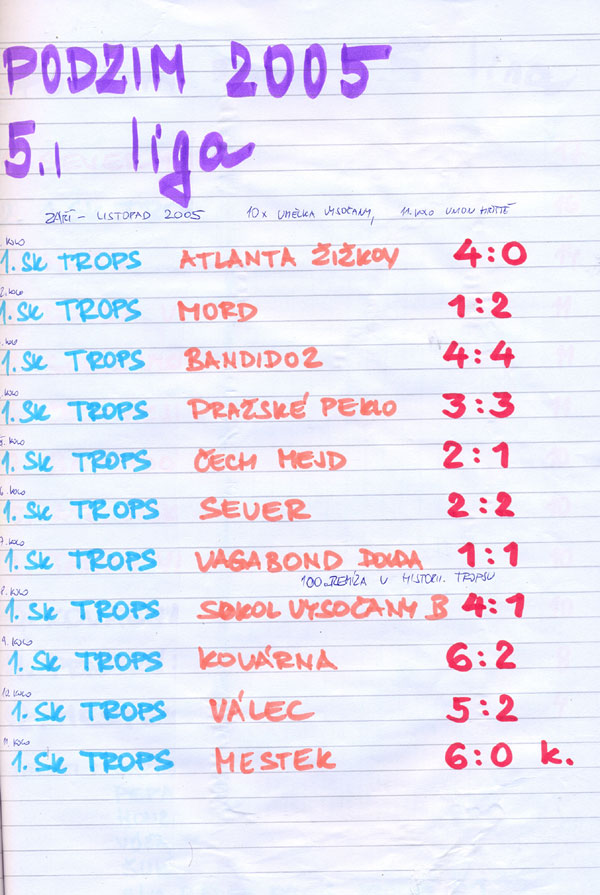 PODZIM 2005
5.| liga
ZÁŘÍ - LISTOPAD 2005 10x UHELKA VYSOČANY, 11. KOLO UNION HŘIŠTĚ
. KOLO
1. SK TROPS ATLANTA ŽIŽKOV 4:0
2. KOLO
1. SK TROPS MORD 1:2
. KOLO
1. SK TROPS BANDIDOZ 4:4
. KOLO
1. SK TROPS PRAŽSKÉ PEKLO 3:3
5. KOLO
1. SK TROPS ČECH MEJD 2:1
6. KOLO
1. SK TROPS SEVER 2:2
7. KOLO
1. SK TROPS VAGABOND 1:1
100. REMÍZA V HISTORII TROPSU
8. KOLO
1. SK TROPS SOKOL VYSOČANY B 4:1
9. KOLO
1. SK TROPS KOVÁRNA 6:2
10. KOLO
1. SK TROPS VÁLEC 5:2
11. KOLO
1. SK TROPS MESTEK 6:0 k.